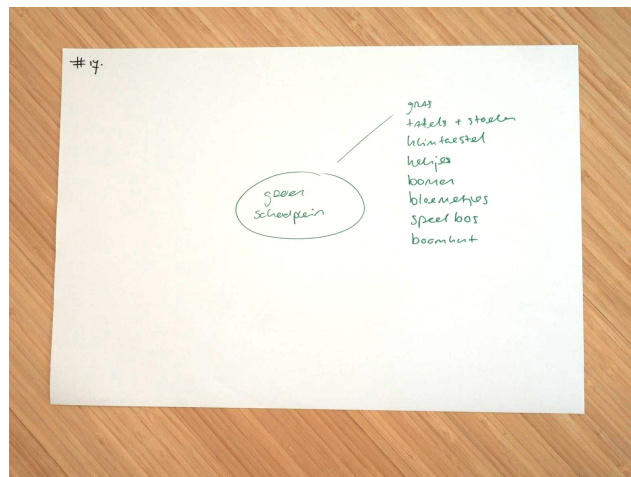 # 17.
groen
schoolplein
gras
tafels + stoelen
klimtoestel
hekjes
bomen
bloemetjes
speelbos
boomhut